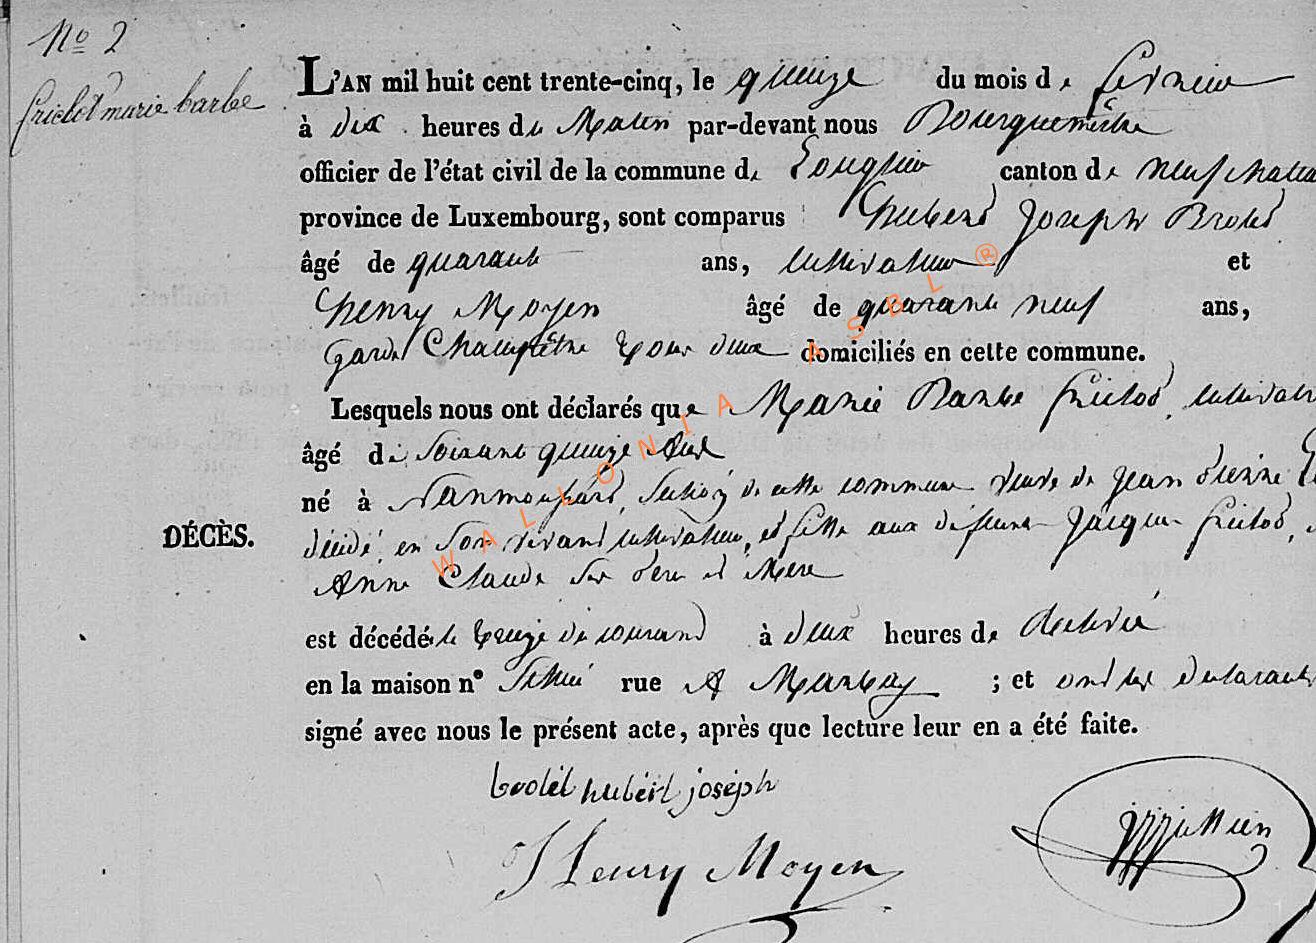 No 2
frictot marie barbe
L'AN mil huit cent trente-cinq, le quinze du mois de
à dix heures de Matin par-devant nous Bourguemestre
officier de l'état civil de la commune de canton de neufchatea
province de Luxembourg, sont comparus hubert Joseph Brolet
âgé de quarante ans, cultivateur et
henry Moyen âgé de quarante neuf ans,
garde Champêtre tous deux domiciliés en cette commune.
Lesquels nous ont déclarés que Marie Barbe frictot, cultivatr
âgé de soixante quinze Ans
né à section de cette commune veuve de jean
décidé en son vivant cultivateur, et fille aux défunts Jacque frictot,
Anne Claude ses père et Mère
est décédé le treize du courant à deux heures de relevée
en la maison n° rue A Marbay ; et ont les declarants
signé avec nous le présent acte, après que lecture leur en a été faite.
DÉCÈS.
brolet hubert joseph
Henry Moyen
WALLONIA ASBL ®